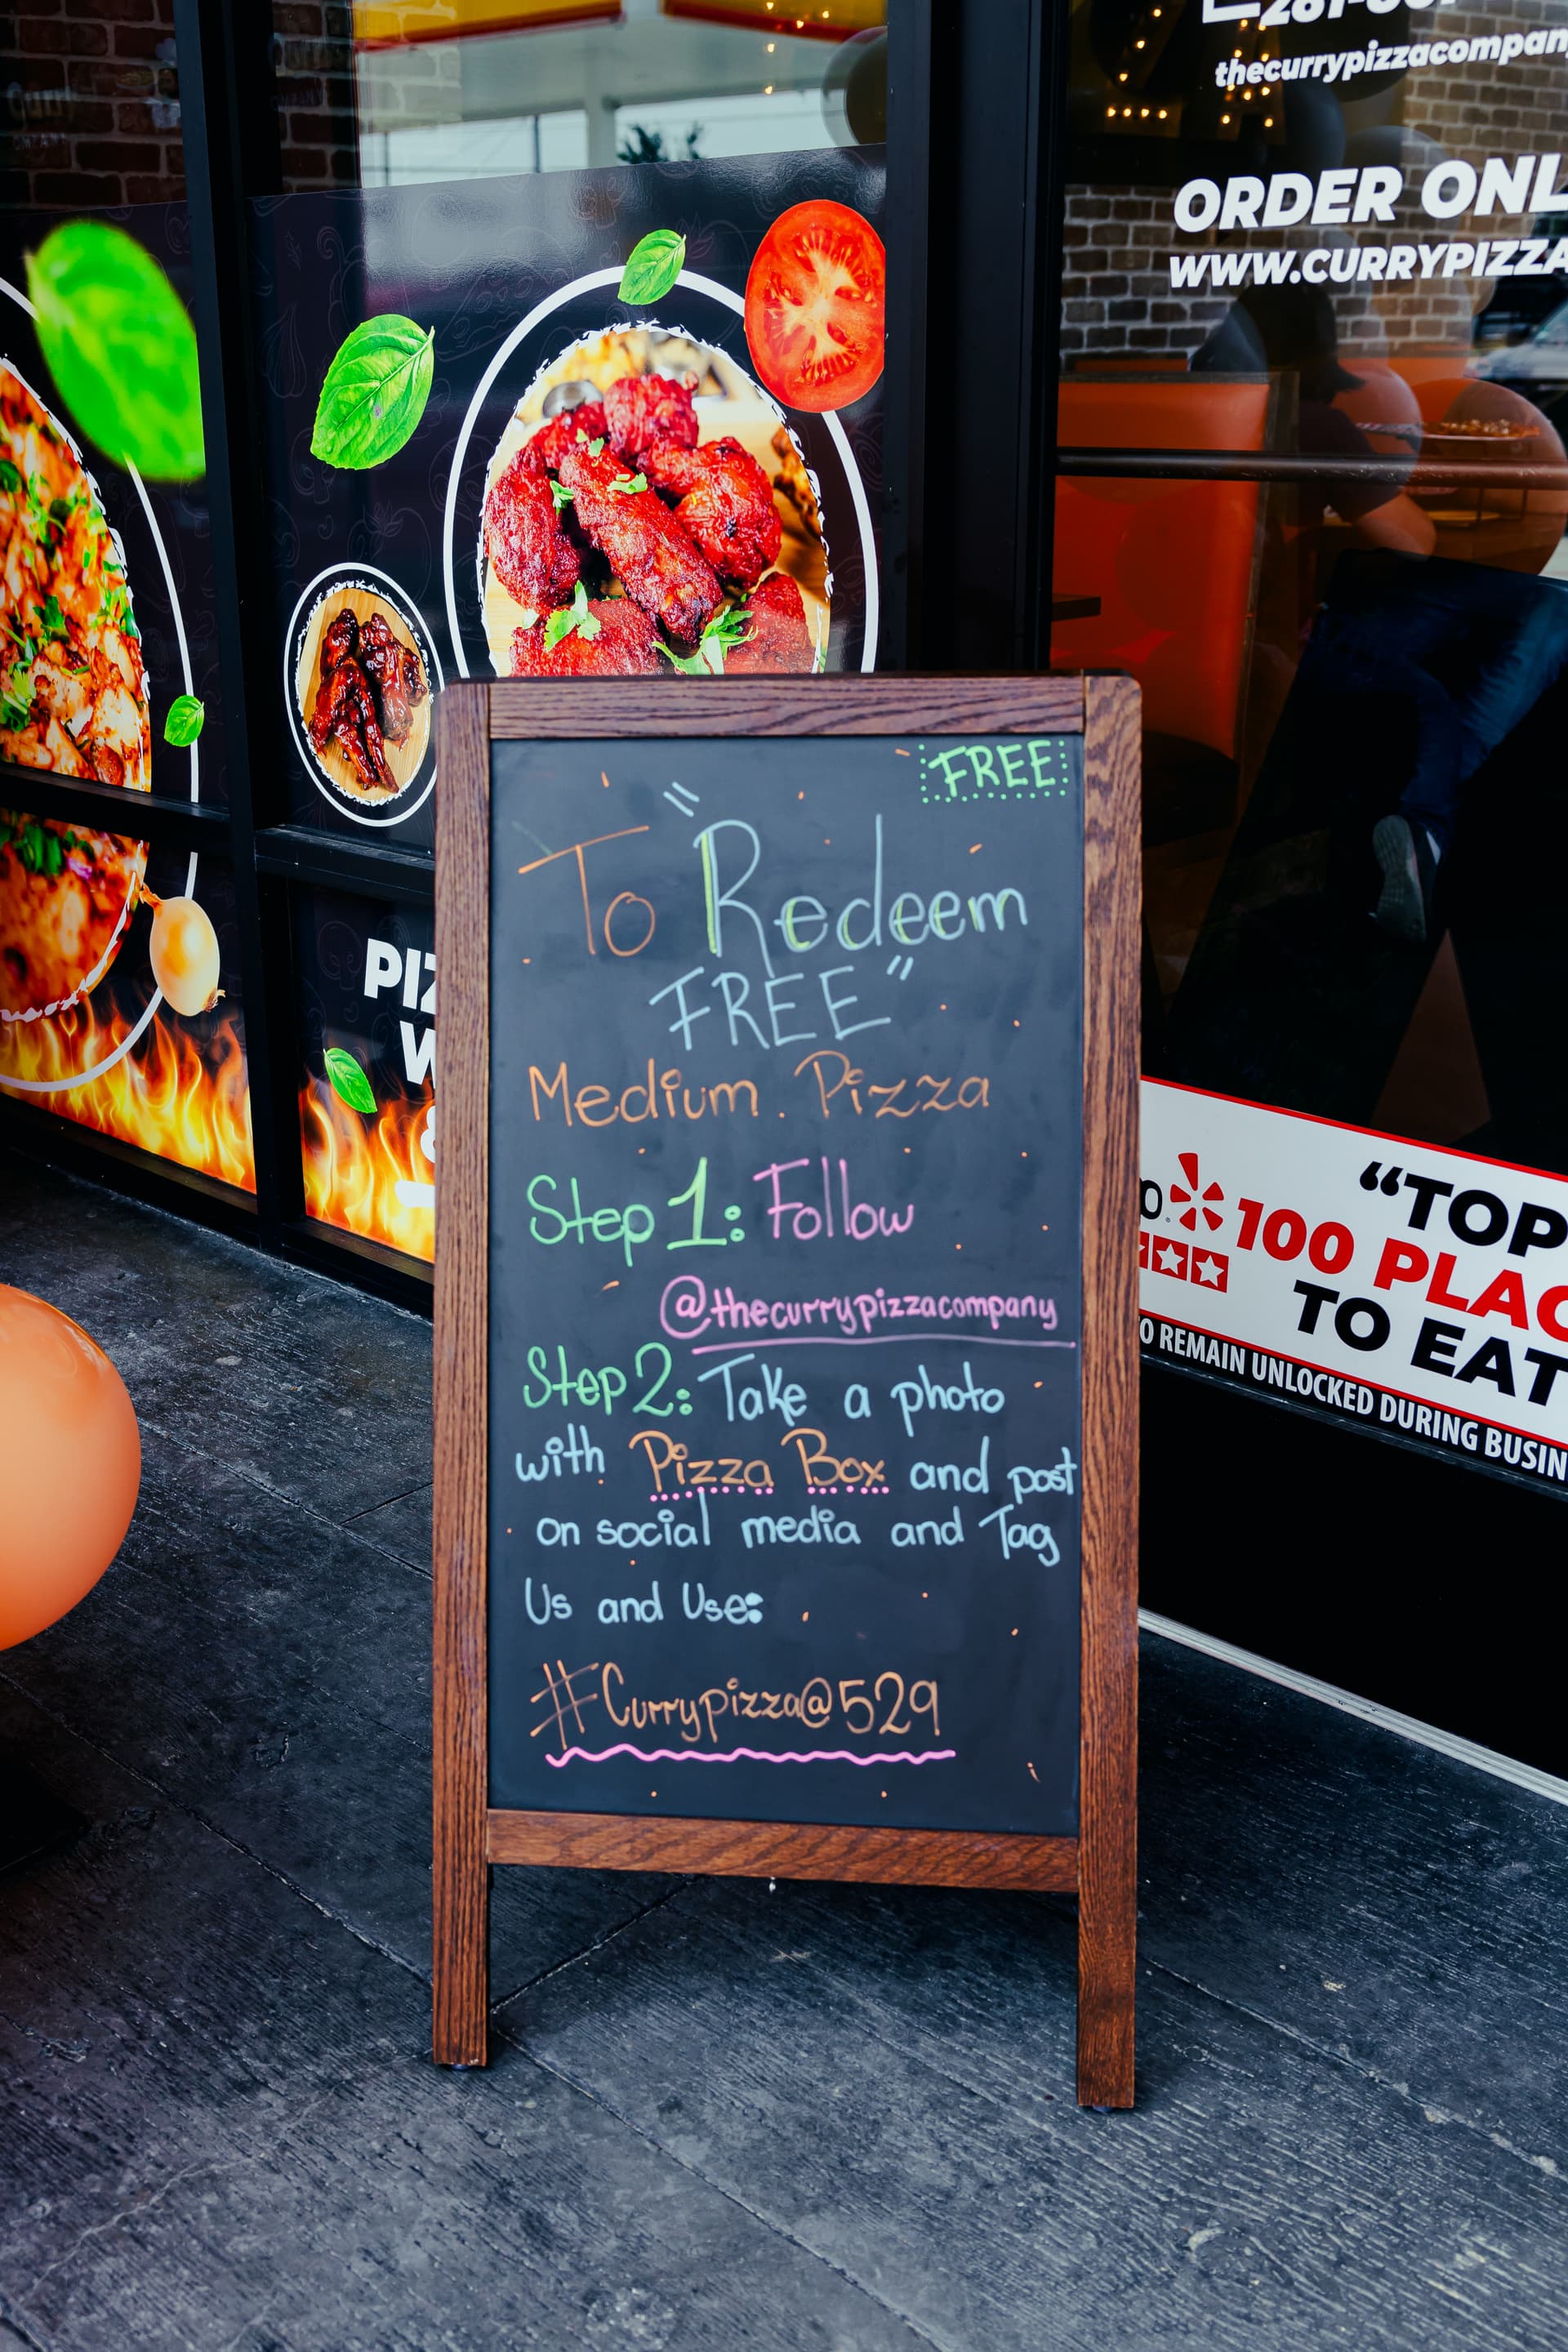 thecurrypizzacompan
ORDER ONL
WWW.CURRYPIZZA
PIZ
W
&
FREE
To "Redeem
FREE"
Medium. Pizza
Step 1: Follow
@thecurrypizzacompany
Step 2: Take a photo
with Pizza Box and post
on social media and Tag
Us and Use:
#Currypizza@529
"TOP
100 PLAC
TO EAT
O REMAIN UNLOCKED DURING BUSIN